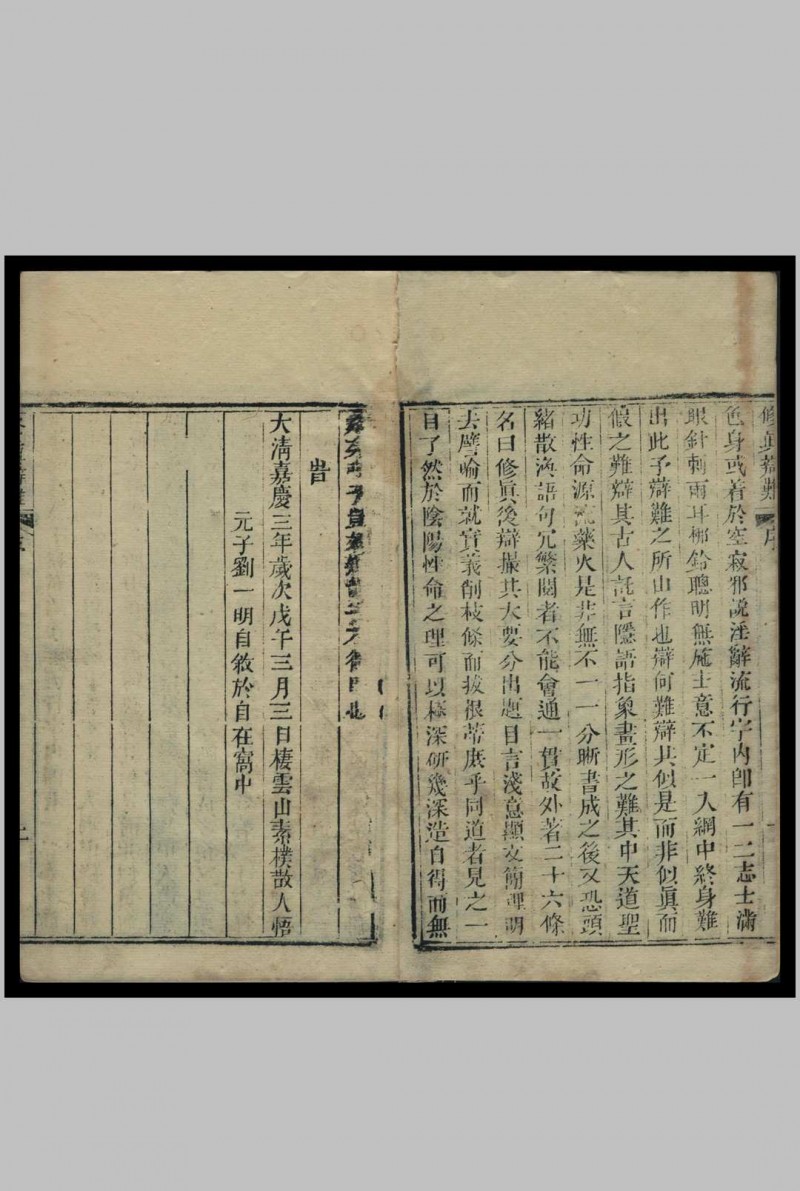 修眞辯難 序
色身或着於空寂邪說淫辭流行宇內卽有一二志士滿
眼針刺兩耳梆鈴聰明無施主意不定一入網中終身難
出此予辯難之所由作也辯何難辯其似是而非似眞而
假之難辯其古人託言隱語指象畫形之難其中天道聖
功性命源流藥火是非無不一一分晰書成之後又恐頭
緒散渙語句冗繁閱者不能會通一貫故外著二十六條
名曰修眞後辯撮其大要分出題目言淺意顯文簡理明
去譬喻而就實義削枝條而拔根蒂庶乎同道者見之一
目了然於陰陽性命之理可以極深研幾深造自得而無
旹
大清嘉慶三年歲次戊午三月三日棲雲山素樸散人悟
元子劉一明自敘於自在窩中